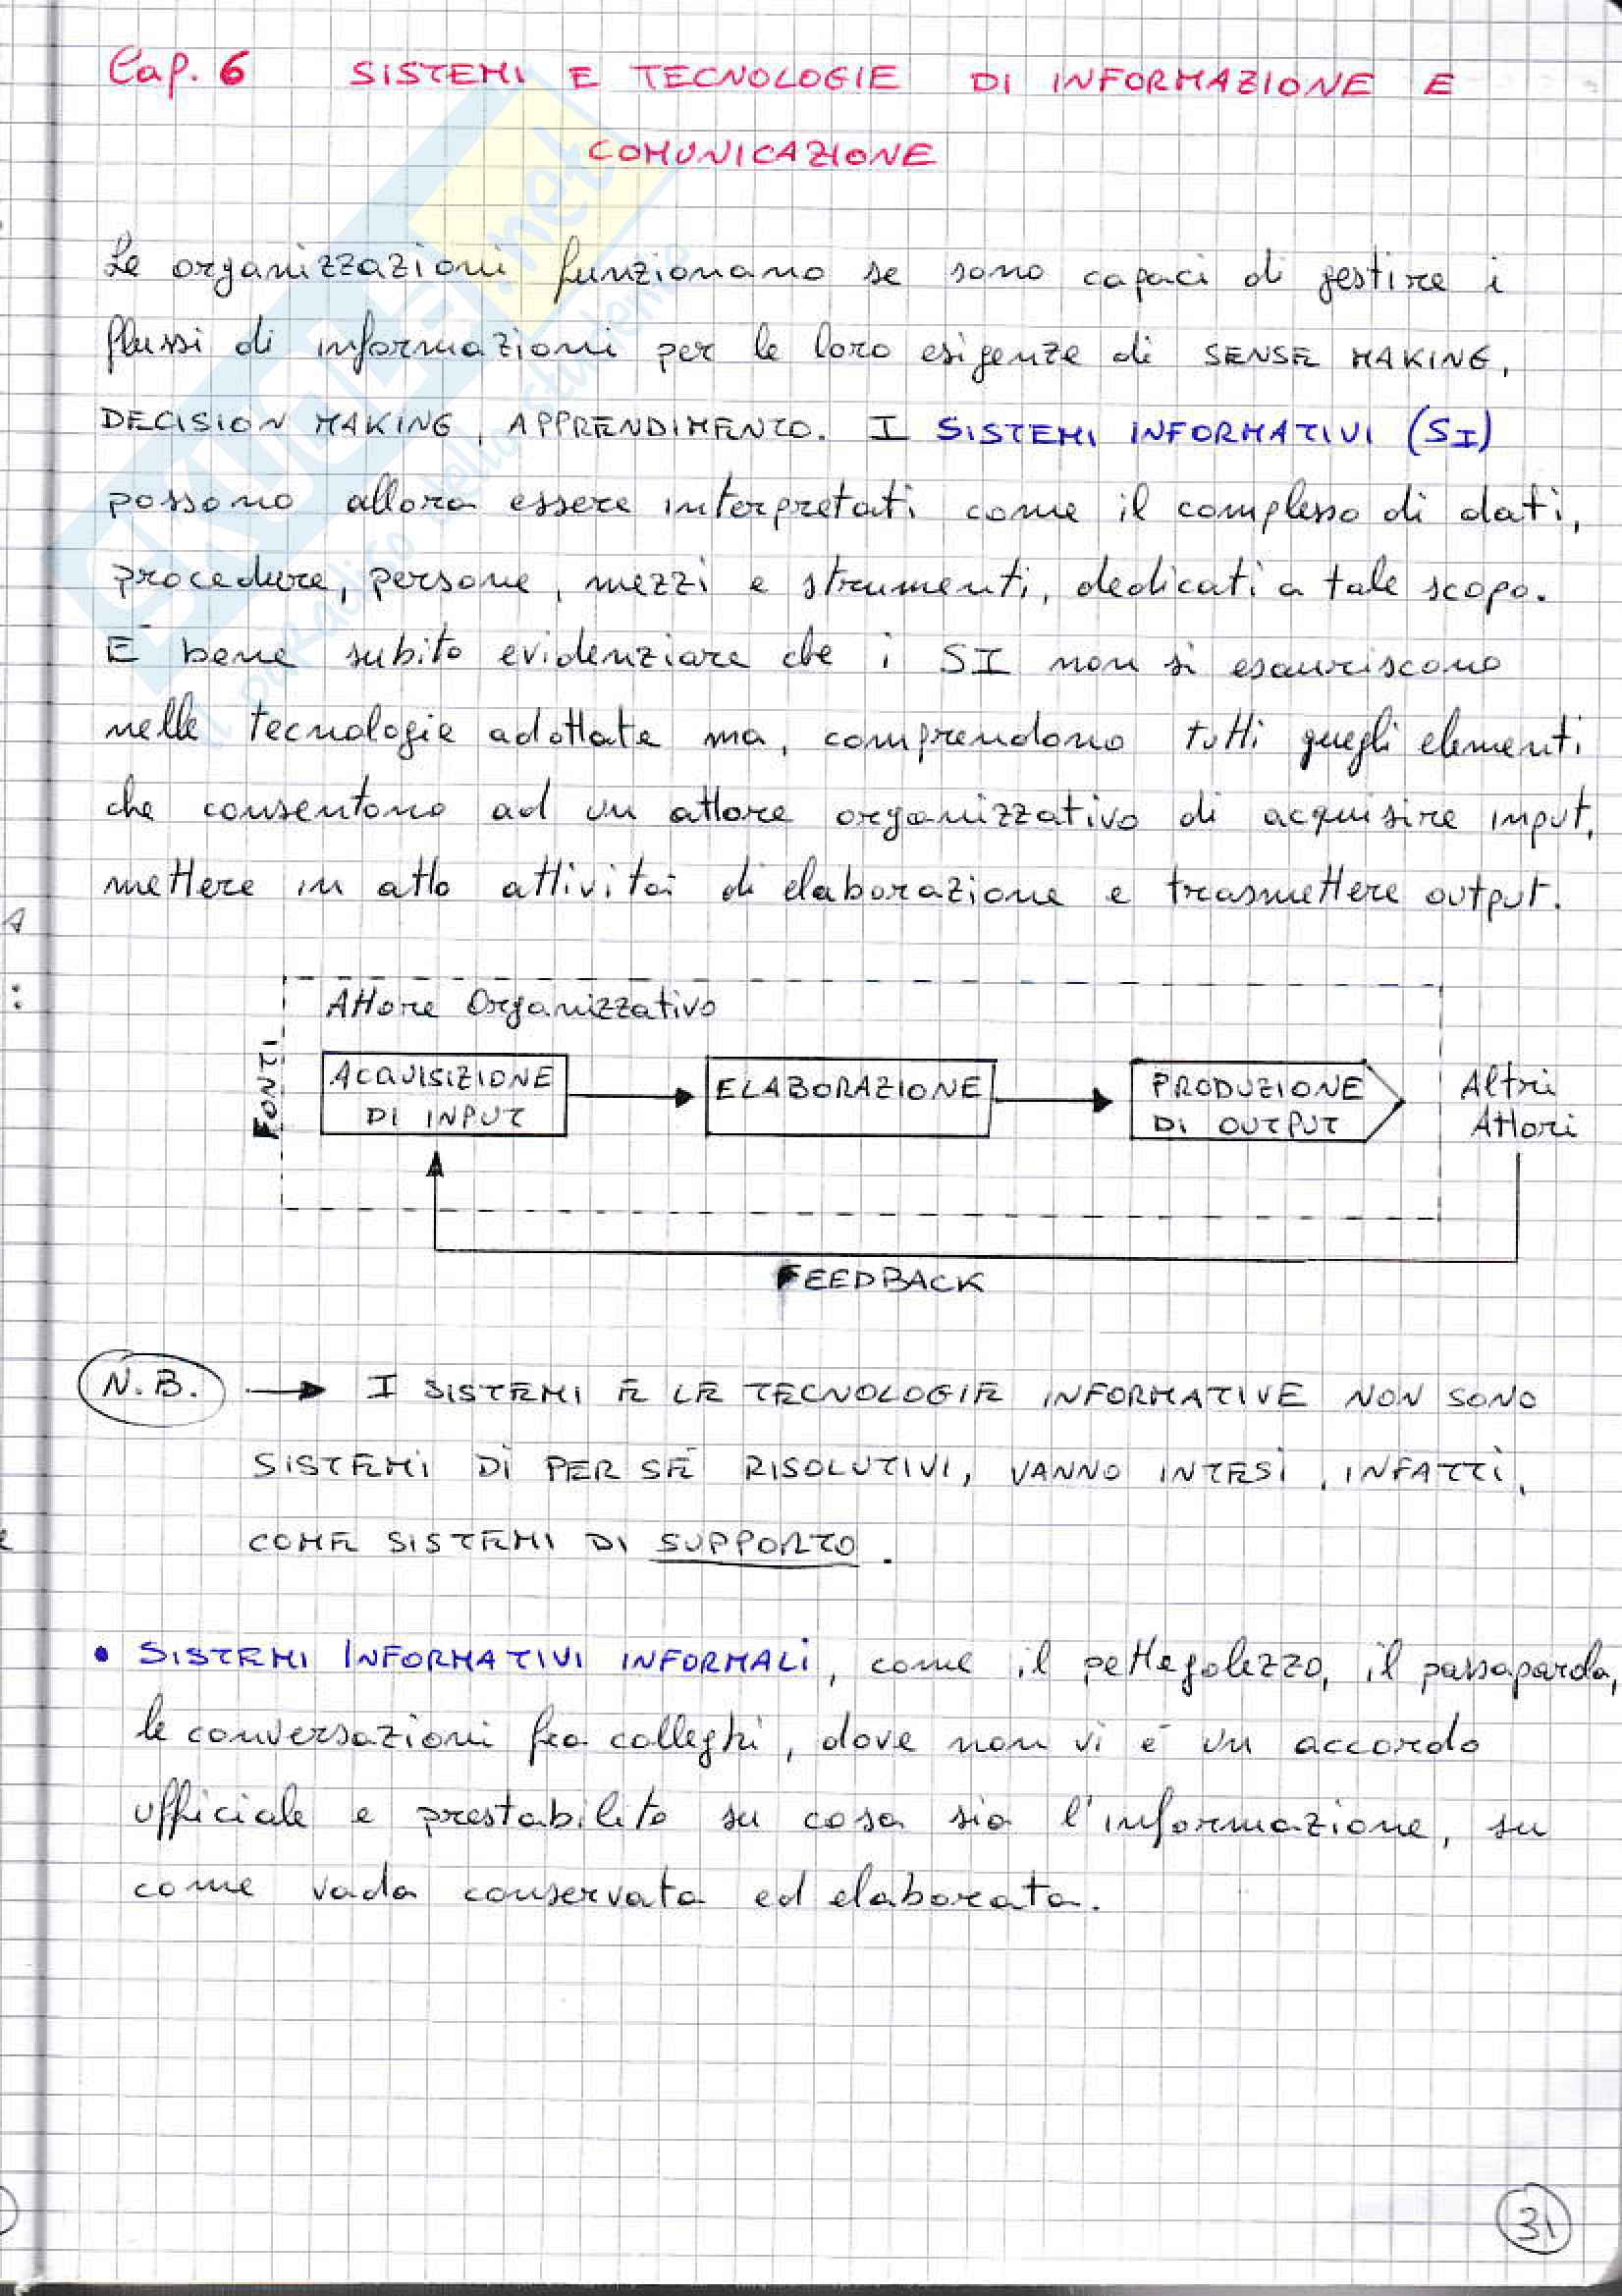 Cap. 6 SISTEMI E TECNOLOGIE DI INFORMAZIONE E
COMUNICAZIONE
Le organizzazioni funzionano se sono capaci di gestire i
flussi di informazioni per le loro esigenze di SENSE MAKING,
DECISION MAKING, APPRENDIMENTO. I SISTEMI INFORMATIVI (SI)
possono allora essere interpretati come il complesso di dati,
procedure, persone, mezzi e strumenti, dedicati a tale scopo.
E' bene subito evidenziare che i SI non si esauriscono
nelle tecnologie adottate ma, comprendono tutti quegli elementi
che consentono ad un attore organizzativo di acquisire input,
mettere in atto attività di elaborazione e trasmettere output.
Attore Organizzativo
FONTI
ACQUISIZIONE
DI INPUT
ELABORAZIONE
PRODUZIONE
DI OUTPUT
Altri
Attori
FEEDBACK
N.B. → I SISTEMI E LE TECNOLOGIE INFORMATIVE NON SONO
SISTEMI DI PER SÉ RISOLUTIVI, VANNO INTESI, INFATTI,
COME SISTEMI DI SUPPORTO.
• SISTEMI INFORMATIVI INFORMALI, come il pettegolezzo, il passaparola,
le conversazioni fra colleghi, dove non vi è un accordo
ufficiale e prestabilito su cosa sia l'informazione, su
come vada conservata ed elaborata.
31
SKUOLA.net
il paradiso dello studente